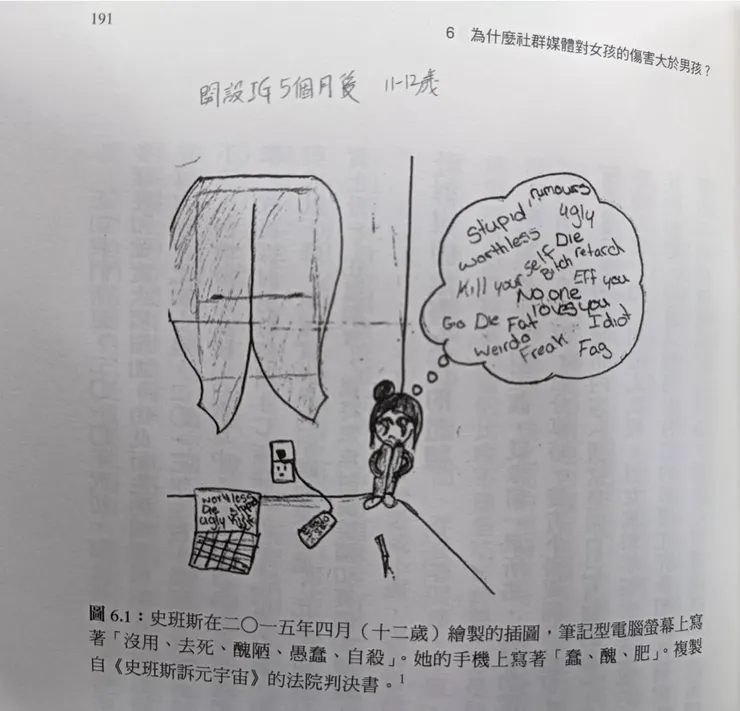 191
6 為什麼社群媒體對女孩的傷害大於男孩？
開設IG 5個月後 11-12歲
rumours
Stupid ugly
worthless Die
Kill your self Bitch retarch
No one Eff you
loves you
Go Die Fat Idiot
Weirdo Freak Fag
worthless
Die
ugly
圖 6.1：史班斯在二〇一五年四月（十二歲）繪製的插圖，筆記型電腦螢幕上寫
著「沒用、去死、醜陋、愚蠢、自殺」。她的手機上寫著「蠢、醜、肥」。複製
自《史班斯訴元宇宙》的法院判決書。1